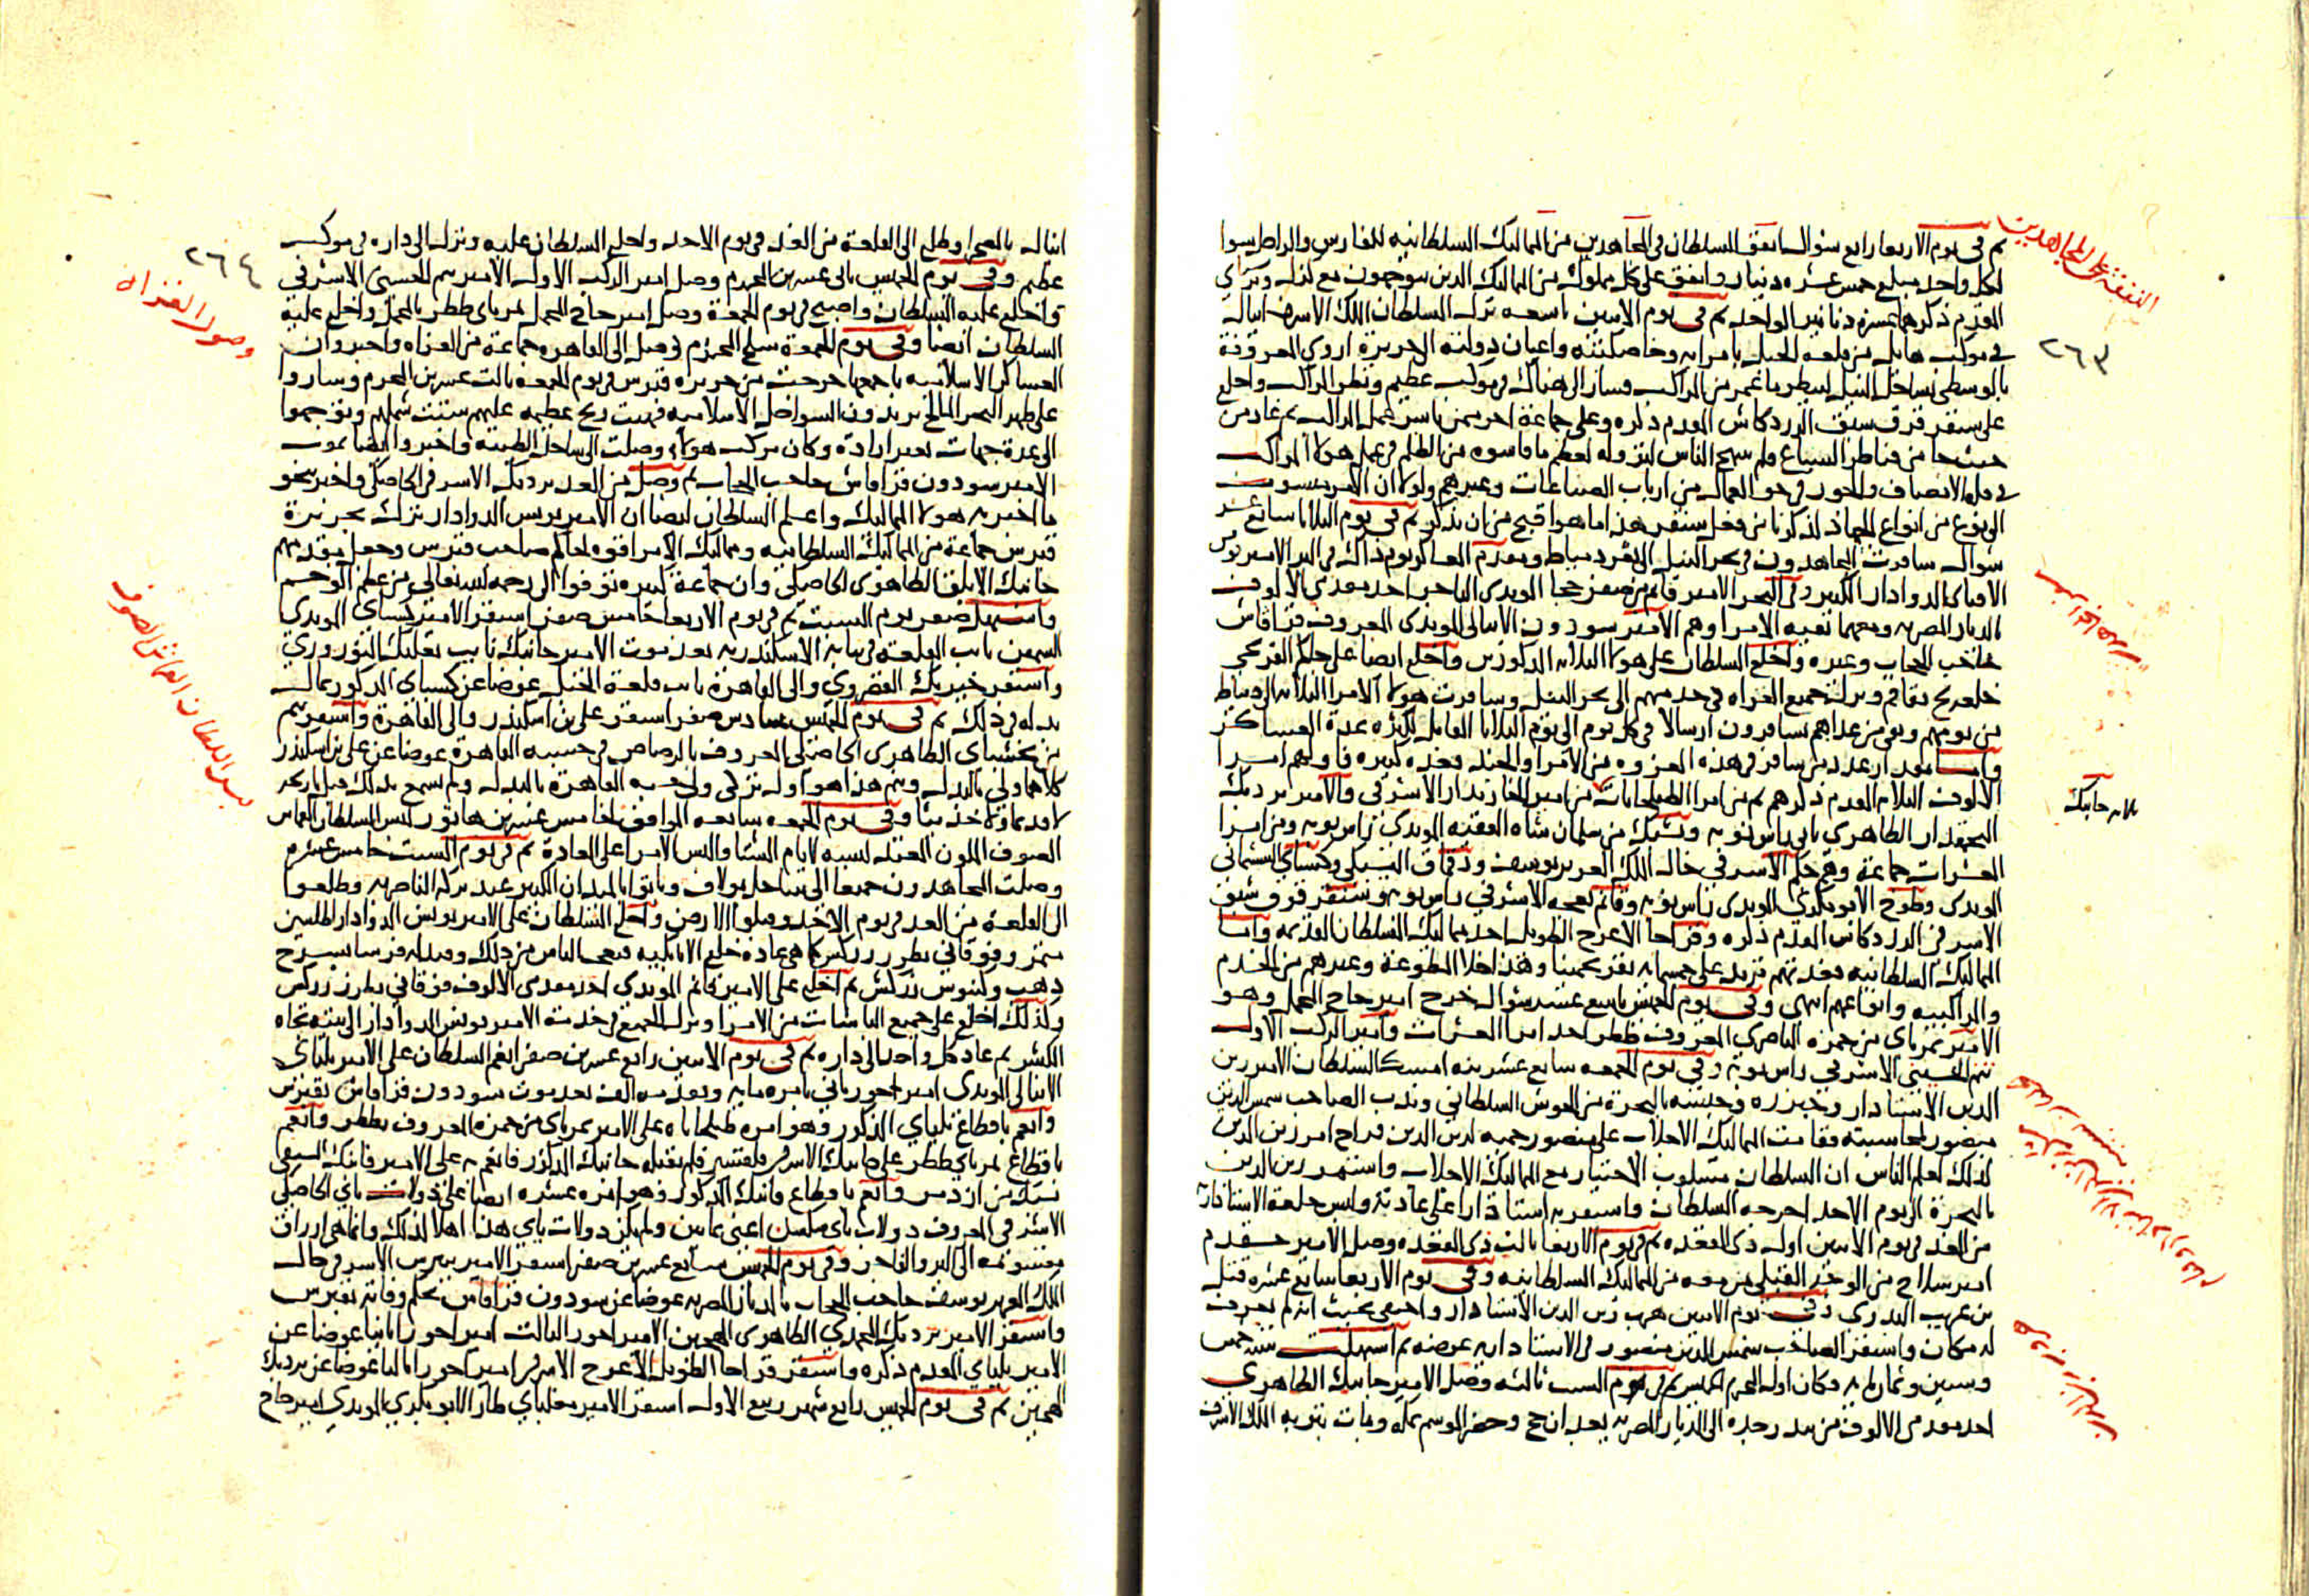 النفقة على المجاهدين
ثم في يوم الاربعا رابع شوال انفق السلطان في المجاهدين من المماليك السلطانيه للفارس والراجل سوا
لكل واحد مبلغ خمس عشره دينار وانفق على كل مملوك من المماليك الذين يتوجهون مع
المقدم ذكرهما عشرة دنانير الواحد ثم في يوم الاثنين تاسعه نزل السلطان الملك الاشرف اينال
في موكب هايل من قلعة الجبل بامرايه وخاصكيته واعيان دولته الى جزيرة اروي المعروفة
٢٦٣
بالوسطى بساحل النيل لينظر ما عمر من المراكب فسار الى هناك في موكب عظيم ونظر المراكب واخلع
على سنقر قرق شبق الزردكاش المقدم ذكره وعلى جماعة اخر ممن باشر عمل المراكب ثم عاد من
حيث جا من قناطر السباع ولم يبتهج الناس لنزوله لعظم ما قاسوه من الظلم في عمل هولا المراكب
في قلة الانصاف والجور في حق العمال من ارباب الصناعات وغيرهم ولولا ان الامر منسوب
الى نوع من انواع الجهاد لذكرنا من فعل سنقر هذا ما هو اقبح من ان يذكر ثم في يوم الثلاثا سابع عشر
شوال سافرت المجاهدون في بحر النيل الى ثغر دمياط ومقدم العساكر يوم ذاك في البر الامير يونس
الاقباي الدوادار الكبير وفي البحر الامير قانم من صفر خجا المويدي التاجر احد مقدمي الالوف
بالديار المصريه ومعهما بقية الامرا وهم الامير سودون الاينالي المويدي المعروف بقراقاش
حاجب الحجاب وغيره واخلع السلطان على هولا الثلاثة المذكورين واخلع ايضا على جاكم الفرنجي
خلعة بقاقم ونزلت جميع الغزاه في خدمتهم الى بحر النيل وسافرت هولا الامرا الثلاثه الى دمياط
من يومهم وبقي من عداهم يسافرون ارسالا في كل يوم الى يوم الثلاثا القابل لكثره عدة العساكر
واما مقدار عدد من سافر في هذه الغزوه من الامرا والجند فعده كبيره فاولهم امرا
الالوف الثلاثة المقدم ذكرهم ثم من امرا الطبلخانات من امير الخازندار الاشرفي والامير بردبك
البجمقدار الظاهري ثاني راس نوبه ويشبك من سلمان شاه الفقيه المويدي راس نوبه ومن امرا
العشرات جماعة وهم جكم الاشرفي خال الملك العزيز يوسف ودقماق اليشبكي وكسباي الششماني
المويدي وطوخ الابوبكري المويدي راس نوبه وقانم نعجه الاشرفي راس نوبه وسنقر قرق شبق
الاشرفي الزردكاش المقدم ذكره وقراجا الاعرج الطويل احد مماليك السلطان القديمه واما
المماليك السلطانيه فعدتهم تزيد على خمسمايه نفر تخمينا وهذا خلا المطوعة وغيرهم من الخدم
والمراكبيه واتباعهم انتهى وفي يوم الخميس تاسع عشر شوال خرج امير حاج المحمل وهو
الامير تمرباي من حمزه الناصري المعروف ططر احد امرا العشرات وامير الركب الاول
تنم الحسيني الاشرفي راس نوبة وفي يوم الجمعه سابع عشرينه امسك السلطان الامير زين
الدين الاستادار وخبزره وحبسه بالبحرة من الحوش السلطاني وندب الصاحب شمس الدين
منصور لمحاسبته فقامت المماليك الاجلاب على منصور حمية لزين الدين فراح امر زين الدين
كذلك لعلم الناس ان السلطان مسلوب الاختيار مع المماليك الاجلاب واستمر زين الدين
بالبحرة الى يوم الاحد اخرجه السلطان واستقر به استادارا على عادته ولبس خلعة الاستاداريه
من الغد في يوم الاثنين اول ذي القعده ثم في يوم الاربعا ثالث ذي القعده وصل الامير خشقدم
امير سلاح من الوجه القبلي من معه من المماليك السلطانيه وفي يوم الاربعا سابع عشره قتل
بن غريب البدوي وفي يوم الاثنين هرب زين الدين الاستادار واختفى بحيث انه لم يعرف
له مكان واستقر الصاحب شمس الدين منصور في الاستاداريه عوضه ثم استهلت سنة خمس
وستين وثمان مايه وكان اول المحرم الخميس ثم في يوم السبت ثالثه وصل الامير جانبك الظاهري
احد مقدمي الالوف من بندر جده الى الديار المصريه بعد ان حج وحضر الموسم بمكه وبات بتربه الملك الاشرف
اينال بالصحرا وطلع الى القلعة من الغد في يوم الاحد واخلع السلطان عليه ونزل الى داره في موكب
٢٦٤
عظيم وفي يوم الخميس ثاني عشرين المحرم وصل امير الركب الاول الامير تنم الحسيني الاشرفي
وصول الغزاه
واخلع عليه السلطان واصبح في يوم الجمعة وصل امير حاج المحمل تمرباي ططر بالمحمل واخلع عليه
السلطان ايضا وفي يوم الجمعة سلخ المحرم وصل الى القاهره جماعة من الغزاه واخبروا ان
العساكر الاسلاميه باجمعها خرجت من جزيره قبرس في يوم الجمعه ثالث عشرين المحرم وساروا
على ظهر البحر المالح يريدون السواحل الاسلاميه فهبت ريح عظيمه عليهم شتت شملهم وتوجهوا
الى عدة جهات بغير ارادة وكان مركب هولاء وصلت الى ساحل الطينه واخبروا ايضا بموت
الامير سودون قراقاش حاجب الحجاب ثم وصل من الغد بردبك الاشرفي الخاصكي واخبر بنحو
ما اخبر به هولا المماليك واعلم السلطان ايضا ان الامير يونس الدوادار ترك بجزيرة
قبرس جماعة من المماليك السلطانيه ومماليك الامرا قوه لجاكم صاحب قبرس وجعل مقدمهم
جانبك الابلق الظاهري الخاصكي وان جماعة كبيره توفوا الى رحمه الله تعالى من عظم الوخم
واستهل صفر يوم السبت ثم في يوم الاربعا خامس صفر استقر الامير كسباي المويدي
السمين نايب القلعة في نيابة الاسكندريه بعد موت الامير جانبك نايب بعلبك النوروزي
واستقر خيربك القصروي والى القاهرة نايب قلعة الجبل عوضا عن كسباي المذكور بمال
بذله في ذلك ثم في يوم الخميس سادس صفر استقر علي بن اسكندر والى القاهرة واستقر تنم
من بخشباي الظاهري الخاصكي المعروف بالرصاص في حسبه القاهرة عوضا عن علي بن اسكندر
كلاهما ولي بالبدل وتنم هذا هو اول تركي ولي حسبه القاهرة بالبدل ولم يسمع بذلك قبل تاريخه
لا قديما ولا حديثا وفي يوم الجمعه سابعه الموافق لخامس عشرين هاتور لبس السلطان القماش
لبس السلطان القماش الصوف
الصوف الملون المعتد لبسه لايام الشتا والبس الامرا على العادة ثم في يوم السبت خامس عشره
وصلت المجاهدون جميعا الى ساحل بولاق وباتوا بالميدان الكبير عند بركه الناصريه وطلعوا
الى القلعة من الغد في يوم الاحد وقبلوا الارض واخلع السلطان على الامير يونس الدوادار اطلسين
متمر وفوقاني بطرز زركش كما هي عادة خلع الاتابكيه فتعجب الناس من ذلك وقيد له فرسا بسرج
ذهب وكنبوش زركش ثم اخلع على الامير قانم المويدي احد مقدمي الالوف فوقاني بطرز زركش
وكذلك اخلع على جميع الباشات من الامرا ونزل الجميع في خدمة الامير يونس الدوادار الى بيته تجاه
الكبش ثم عاد كل واحد الى داره ثم في يوم الاثنين رابع عشرين صفر انعم السلطان على الامير يلباي
الاينالي المويدي امير اخور ثاني بامره مايه وتقدمه الف بعد موت سودون قراقاش بقبرس
وانعم باقطاع يلباي المذكور وهو امره طبلخاناه على الامير تمرباي من حمزه المعروف بططر وانعم
باقطاع تمرباي ططر على جانبك الاشرفي فلم يقبله جانبك المذكور فانعم به على الامير قانبك السيفي
يشبك من ازدمر وانعم باقطاع قانبك المذكور وهو امره عشره ايضا على دولات باي الخاصكي
الاشرفي المعروف دولات باي سكسن اعني ثمانين ولم يكن دولات باي هذا اهلا لذلك وانما هي ارزاق
مقسومه الى البر والفاجر وفي يوم الخميس سابع عشرين صفر استقر الامير بيبرس الاشرفي خال
الملك العزيز يوسف حاجب الحجاب بالديار المصريه عوضا عن سودون قراقاش بحكم وفاته بقبرس
واستقر الامير بردبك المحمدي الظاهري الهجين الامير اخور الثالث امير اخورا ثانيا عوضا عن
الامير يلباي المقدم ذكره واستقر قراجا الطويل الاعرج الاشرفي امير اخورا ثالثا عوضا عن بردبك
الهجين ثم في يوم الخميس رابع شهر ربيع الاول استقر الامير مغلباي طاز الابوبكري المويدي امير حاج